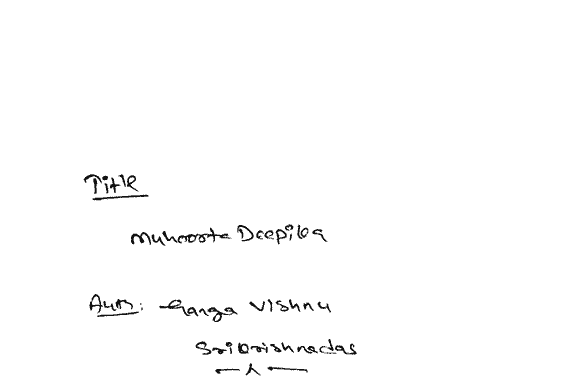 Title
Muhoorta Deepika
Auth: Ganga Vishnu
Srikrishnadas